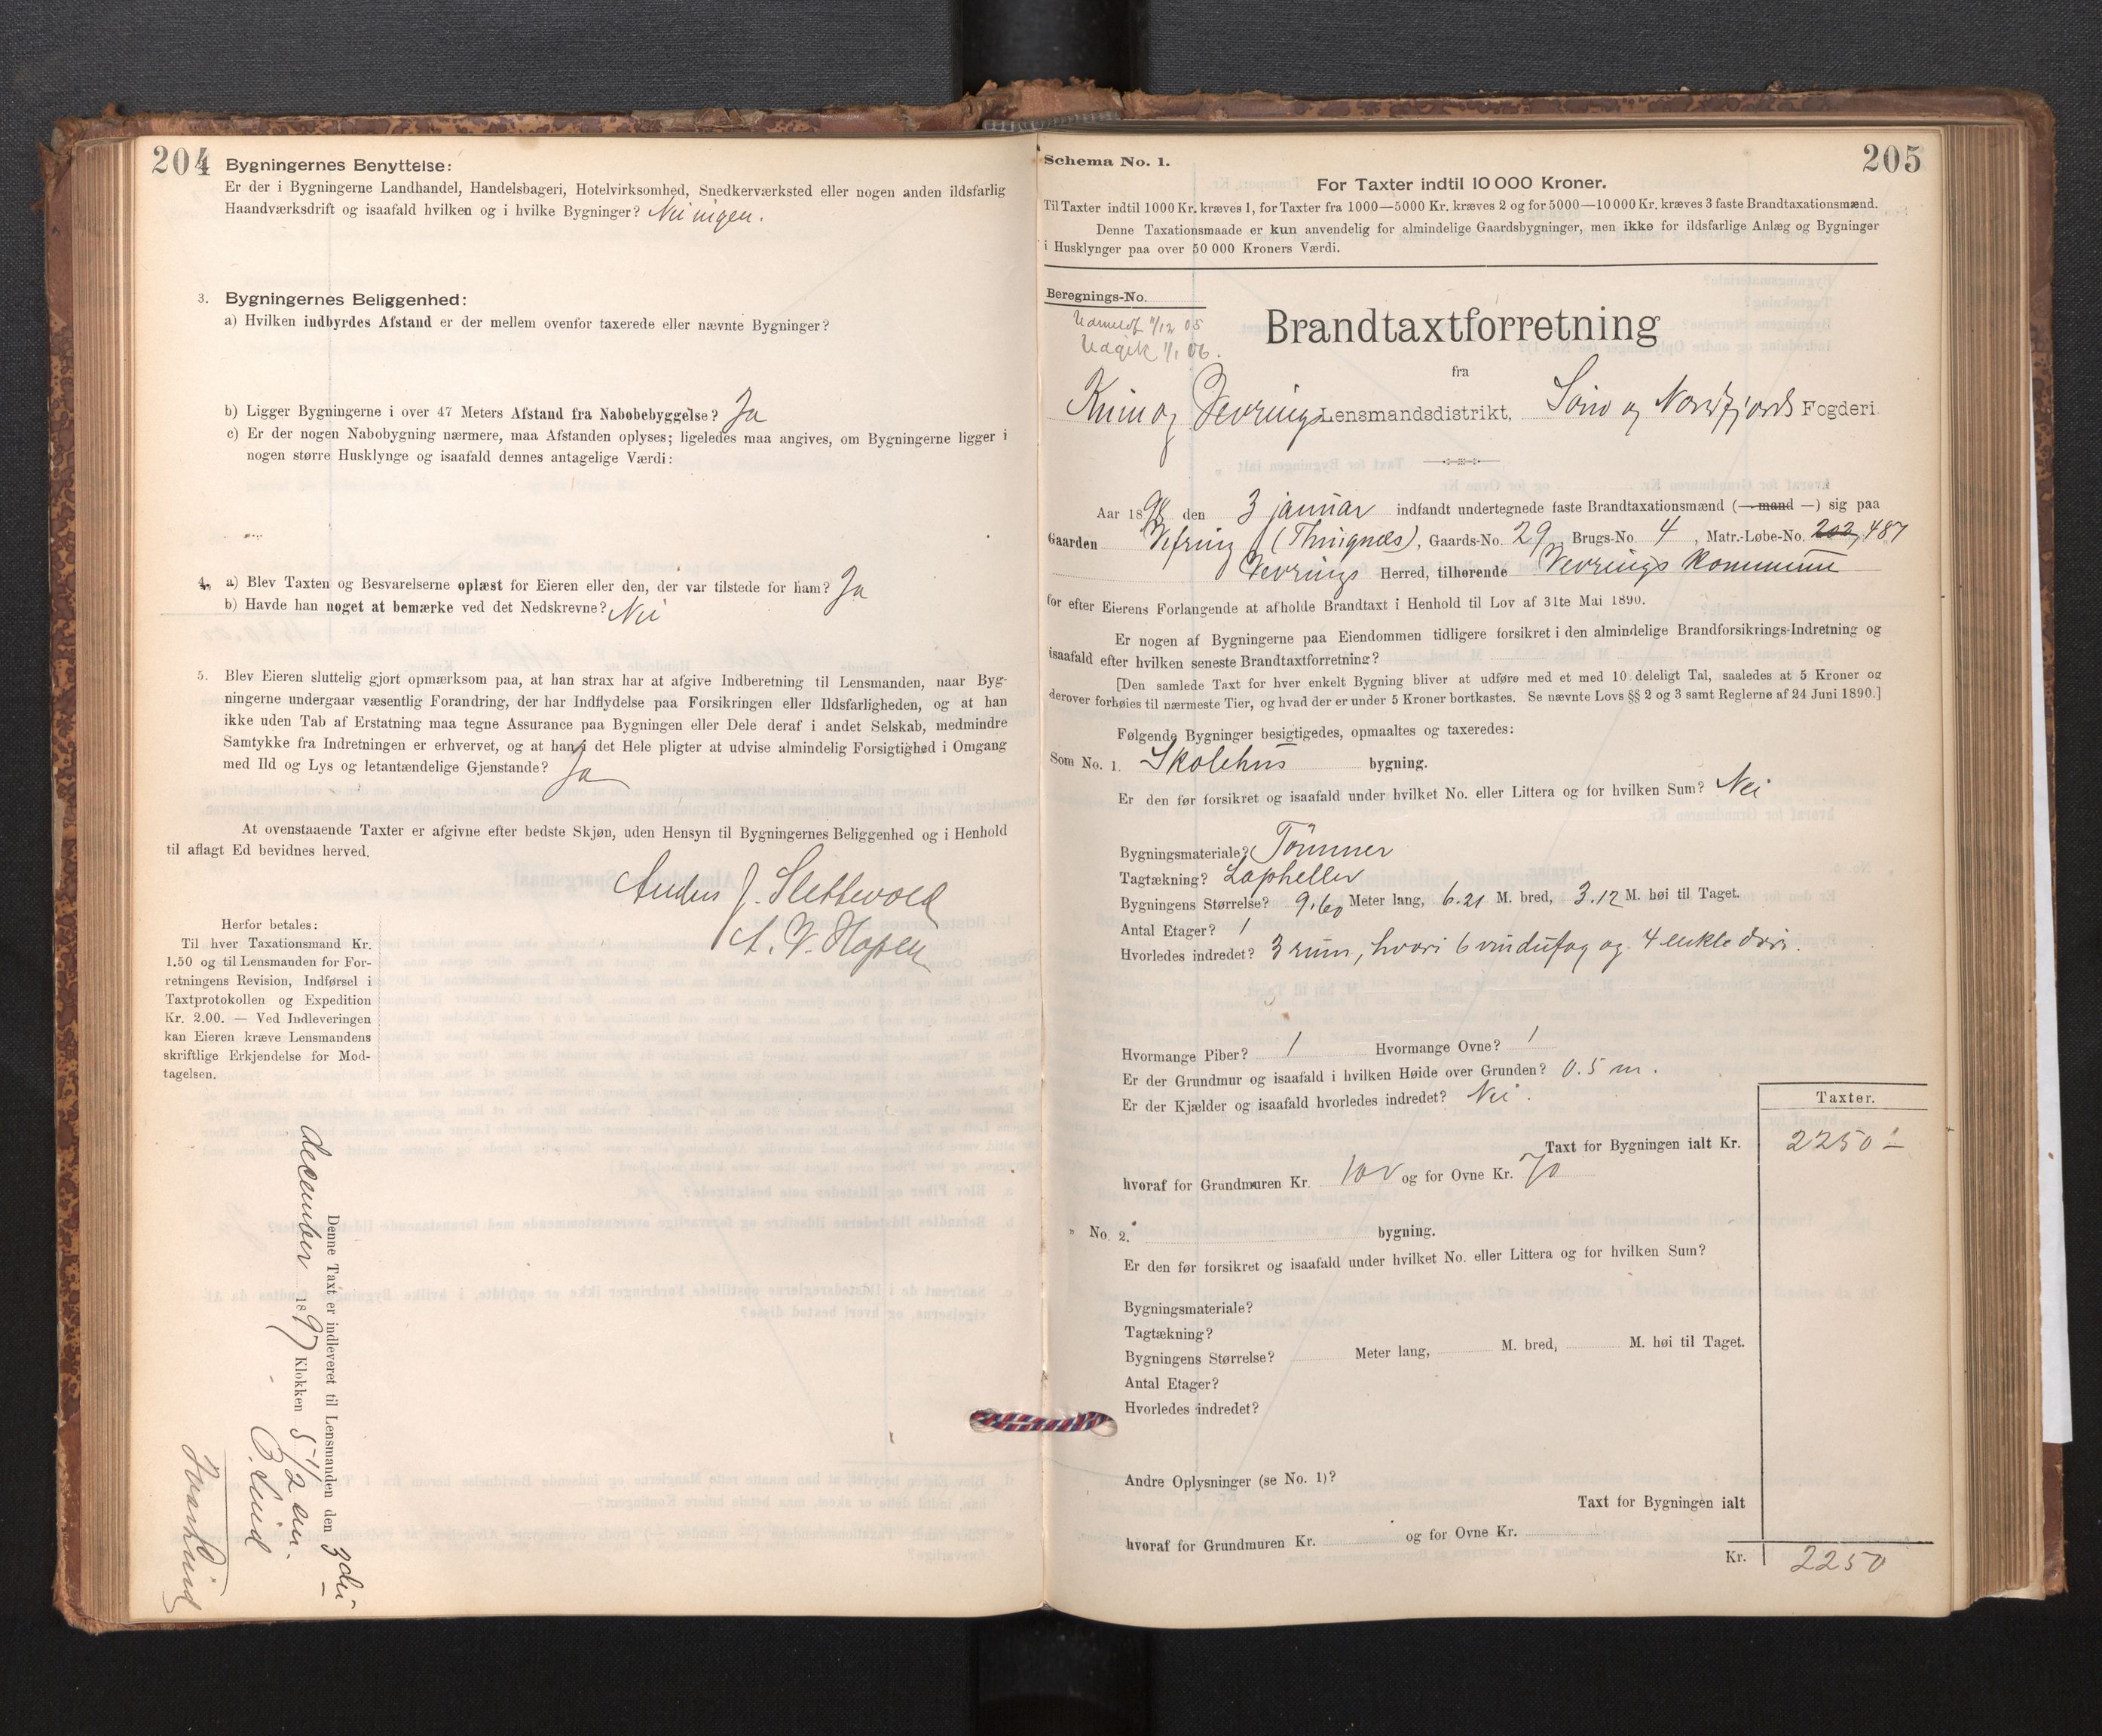 204
Bygningernes Benyttelse:
Er der i Bygningerne Landhandel, Handelsbageri, Hotelvirksomhed, Snedkerværksted eller nogen anden ildsfarlig
Haandværksdrift og isaafald hvilken og i hvilke Bygninger? Nei ingen.
3. Bygningernes Beliggenhed:
a) Hvilken indbyrdes Afstand er der mellem ovenfor taxerede eller nævnte Bygninger?
b) Ligger Bygningerne i over 47 Meters Afstand fra Nabobebyggelse? Ja
c) Er der nogen Nabobygning nærmere, maa Afstanden oplyses; ligeledes maa angives, om Bygningerne ligger i
nogen større Husklynge og isaafald dennes antagelige Værdi:
4. a) Blev Taxten og Besvarelserne oplæst for Eieren eller den, der var tilstede for ham? Ja
b) Havde han noget at bemærke ved det Nedskrevne? Nei
5. Blev Eieren sluttelig gjort opmærksom paa, at han strax har at afgive Indberetning til Lensmanden, naar Byg-
ningerne undergaar væsentlig Forandring, der har Indflydelse paa Forsikringen eller Ildsfarligheden, og at han
ikke uden Tab af Erstatning maa tegne Assurance paa Bygningen eller Dele deraf i andet Selskab, medmindre
Samtykke fra Indretningen er erhvervet, og at han i det Hele pligter at udvise almindelig Forsigtighed i Omgang
med Ild og Lys og letantændelige Gjenstande? Ja
At ovenstaaende Taxter er afgivne efter bedste Skjøn, uden Hensyn til Bygningernes Beliggenhed og i Henhold
til aflagt Ed bevidnes herved.
Anders J. Slettevold
A. V. Hopen
Herfor betales:
Til hver Taxationsmand Kr.
1.50 og til Lensmanden for For-
retningens Revision, Indførsel i
Taxtprotokollen og Expedition
Kr. 2.00. — Ved Indleveringen
kan Eieren kræve Lensmandens
skriftlige Erkjendelse for Mod-
tagelsen.
Denne Taxt er indleveret til Lensmanden den 3die
december 1897 Klokken 5 1/2 em.
Lind
Ivar Lind
205
Schema No. 1.
For Taxter indtil 10 000 Kroner.
Til Taxter indtil 1000 Kr. kræves 1, for Taxter fra 1000—5000 Kr. kræves 2 og for 5000—10 000 Kr. kræves 3 faste Brandtaxationsmænd.
Denne Taxationsmaade er kun anvendelig for almindelige Gaardsbygninger, men ikke for ildsfarlige Anlæg og Bygninger
i Husklynger paa over 50 000 Kroners Værdi.
Beregnings-No.
Udmeldt 11/12 05
Udgik 1/1 06.
Brandtaxtforretning
fra
Kinn og Vevrings Lensmandsdistrikt, Sønd og Nordfjords Fogderi
Aar 1898 den 3 januar indfandt undertegnede faste Brandtaxationsmænd (— mand —) sig paa
Gaarden Vefring (Thingnæs), Gaards-No. 29, Brugs-No. 4, Matr.-Løbe-No. 202, 487
Vevrings Herred, tilhørende Vevrings Kommune
for efter Eierens Forlangende at afholde Brandtaxt i Henhold til Lov af 31te Mai 1890.
Er nogen af Bygningerne paa Eiendommen tidligere forsikret i den almindelige Brandforsikrings-Indretning og
isaafald efter hvilken seneste Brandtaxtforretning?
[Den samlede Taxt for hver enkelt Bygning bliver at udføre med et med 10 deleligt Tal, saaledes at 5 Kroner og
derover forhøies til nærmeste Tier, og hvad der er under 5 Kroner bortkastes. Se nævnte Lovs §§ 2 og 3 samt Reglerne af 24 Juni 1890.]
Følgende Bygninger besigtigedes, opmaaltes og taxeredes:
Som No. 1. Skolehus bygning.
Er den før forsikret og isaafald under hvilket No. eller Littera og for hvilken Sum? Nei
Bygningsmateriale? Tømmer
Tagtækning? Lapheller
Bygningens Størrelse? 9.60 Meter lang, 6.21 M. bred, 3.12 M. høi til Taget.
Antal Etager? 1
Hvorledes indredet? 3 rum, hvori 6 vindufag og 4 enkle døre.
Hvormange Piber? 1 Hvormange Ovne? 1
Er der Grundmur og isaafald i hvilken Høide over Grunden? 0.5 m.
Er der Kjælder og isaafald hvorledes indredet? Nei.
Taxter.
Taxt for Bygningen ialt Kr. 2250 -
hvoraf for Grundmuren Kr. 100 og for Ovne Kr. 70
„ No. 2. bygning.
Er den før forsikret og isaafald under hvilket No. eller Littera og for hvilken Sum?
Bygningsmateriale?
Tagtækning?
Bygningens Størrelse? Meter lang, M. bred, M. høi til Taget.
Antal Etager?
Hvorledes indredet?
Andre Oplysninger (se No. 1)?
Taxt for Bygningen ialt
hvoraf for Grundmuren Kr. og for Ovne Kr.
Kr. 2250